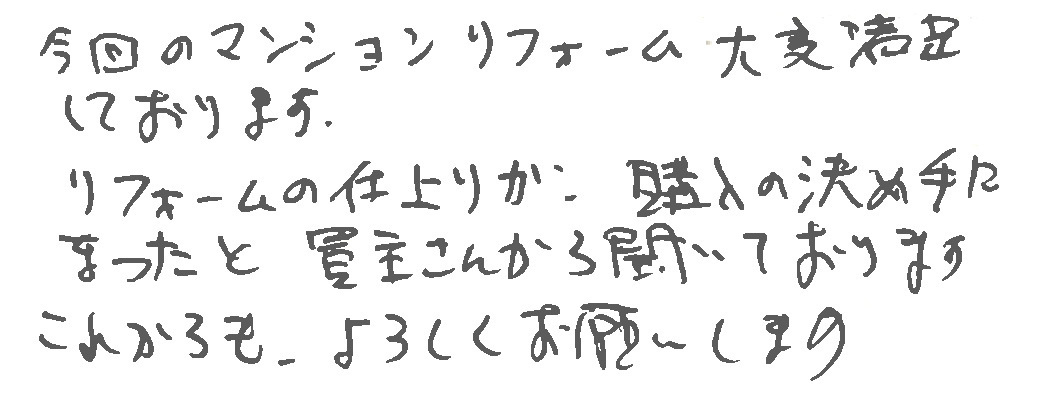 今回のマンションリフォーム大変満足
しております.
リフォームの仕上りが、購入の決め手に
なったと買主さんから聞いております
これからも、よろしくお願いします